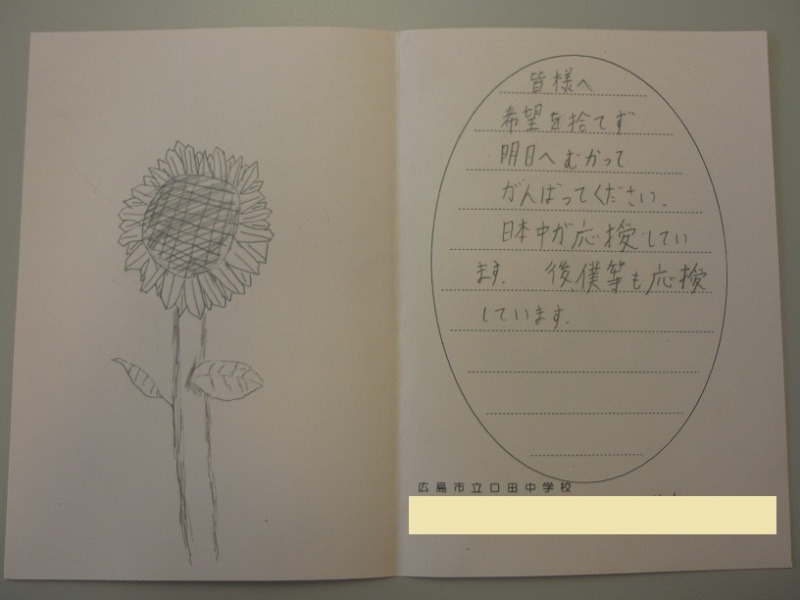 皆様へ
希望を捨てず
明日へむかって
がんばってください.
日本中が応援してい
ます. 後、僕等も応援
しています.
広島市立口田中学校